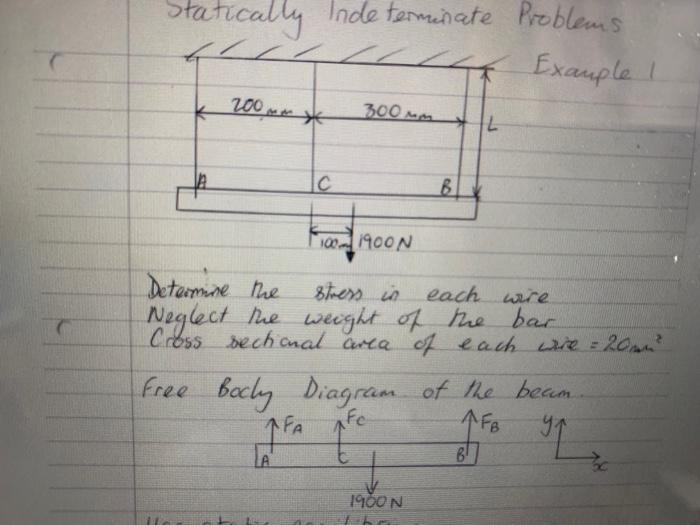 Statically Indeterminate Problems
Example 1
200mm
300mm
L
A
C
B
100mm
1900N
Determine the stress in each wire
Neglect the weight of the bar
Cross sectional area of each wire = 20mm²
Free Body Diagram of the beam.
FA
FC
FB
y
A
C
B
x
1900N